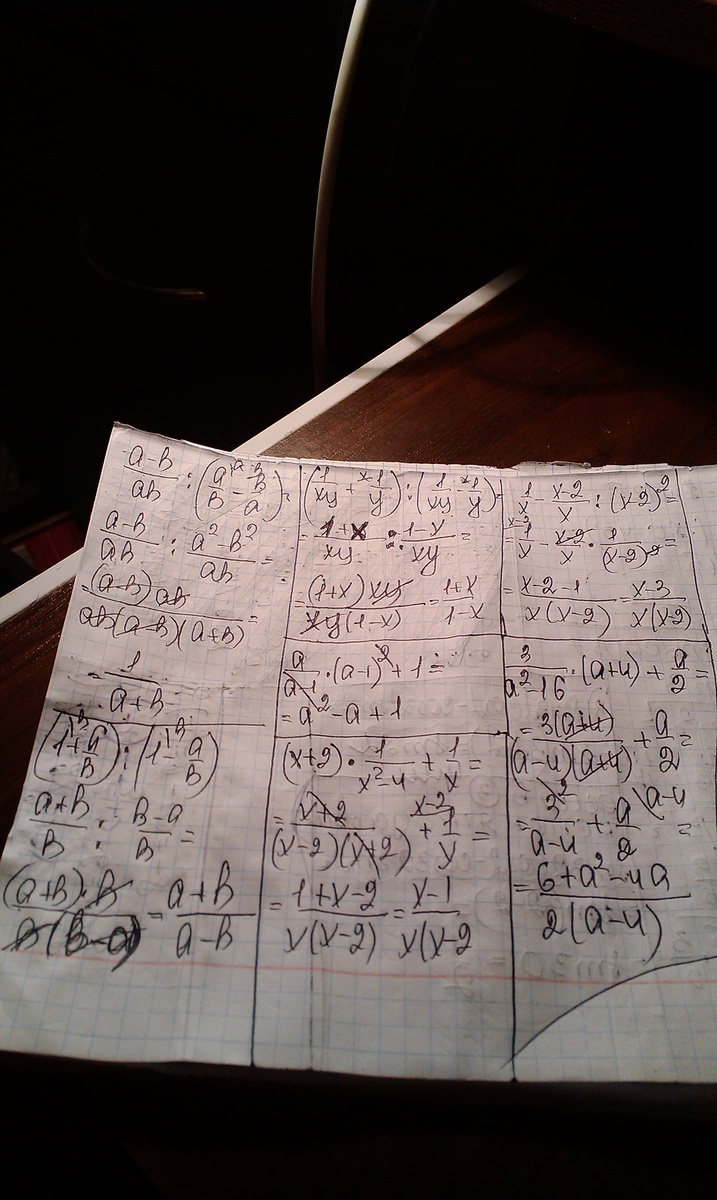 (a-b)/ab : (a/b - b/a) =
(a-b)/ab : (a²-b²)/ab =
= (a-b)ab / ab(a-b)(a+b) =
= 1/(a+b)
(1 + a/b) : (1 - a/b)
(a+b)/b : (b-a)/b =
(a+b)·b / b(b-a) = (a+b)/(a-b)
(1/xy + 1/y) : (1/xy - 1/y) =
= (1+x)/xy : (1-x)/xy =
= (1+x)xy / xy(1-x) = (1+x)/(1-x)
a/(a-1) · (a-1)² + 1 =
= a² - a + 1
(x+2) · 1/(x²-4) + 1/x =
= (x+2)/(x-2)(x+2) + 1/x =
= (1+x-2)/x(x-2) = (x-1)/x(x-2
1/x - (x-2)/x : (x-2)² =
= 1/x - (x-2)/x · 1/(x-2)² =
= (x-2-1)/x(x-2) = (x-3)/x(x-2)
3/(a²-16) · (a+4) + a/2 =
= 3(a+4)/(a-4)(a+4) + a/2 =
= 3/(a-4) + a/2 =
= (6+a²-4a)/2(a-4)